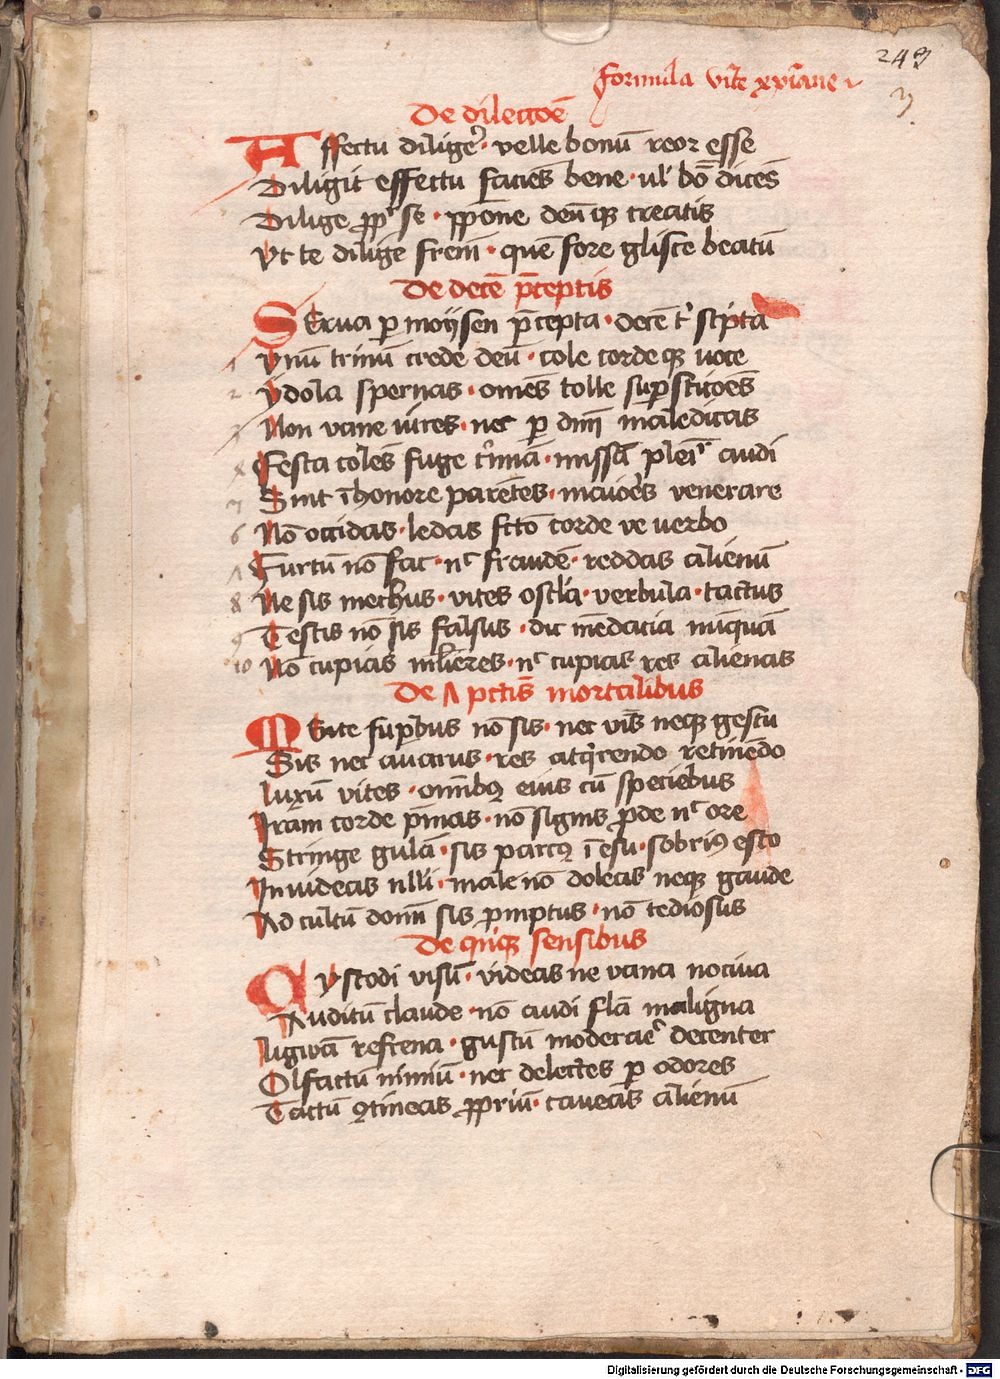 249
Formula vite xp̄iane
3
De dilectōe
Affectu diligeʳ · velle bonū reor esse
Diligit effectu facies bene · ul' bō dices
Dilige ꝓp̱ʳ se · ꝓpōne deū qȝ creatis
Vt te dilige frem̄ · quē fore glisce beatū
De decē p̄ceptis
SErua ꝑ moÿsen p̄cepta · decē tʳ scͥpta
1 Vnū trinū crede deū · cole corde qȝ uoce
2 Ydola spernas · omēs tolle suꝑstic̄oēs
3 Non vane iures · nec ꝑ dm̄ maledicas
Festa coles fuge cͥmīa · missā pleʳ audi
Sint ī honore parētes · maiores venerare
6 Nō occidas · ledas fc̄to corde ve uerbo
Furtū nō fac · nᶜ fraudē · reddas alienū
8 Ne sis mechus · vites oscl'a · verbula · tactus
9 Testis nō sis falsus · dic mēdacia nūquā
10 Nō cupias ml'ieres · nᶜ cupias res alienas
De Λ pctīs mortalibus
MEnte suꝑbus nō sis · nec vb̄is neqȝ gestu
Sis nec auarus · res atqͥrendo retinēdo
Luxū vites · omībꝫ eius cū speciebus
Iram corde p̄mas · nō signis ꝓde nᶜ ore
Stringe gulā · sis parcꝰ ī esu · sobriꝰ esto
Inuideas nlli · male nō doleas neqȝ gaude
Ad cultū domī sis ꝓmptus · nō tediosus
De qͥnqȝ sensibus
CVstodi visū · videas ne vana nociua
Auditū claude · nō audi fl'a maligna
Ligwā refrena · gustū moderaʳe decenter
Olfactū nimiū · nec delectes ꝑ odores
Tactū ꝯtineas ꝓpriū · caueas alienū
Digitalisierung gefördert durch die Deutsche Forschungsgemeinschaft - DFG